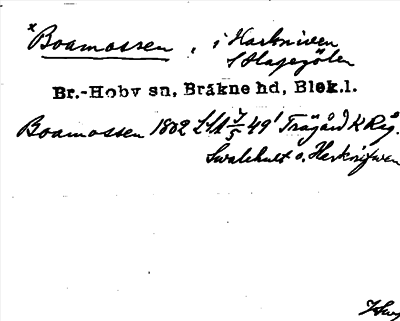 x Boamossen, i Harkniven
S Hagagölen
Br.-Hoby sn, Bräkne hd, Blek.l.
Boamossen 1802 LSA 7/5 49' Trägård K Reg.
Svalehult o. Harknifwen